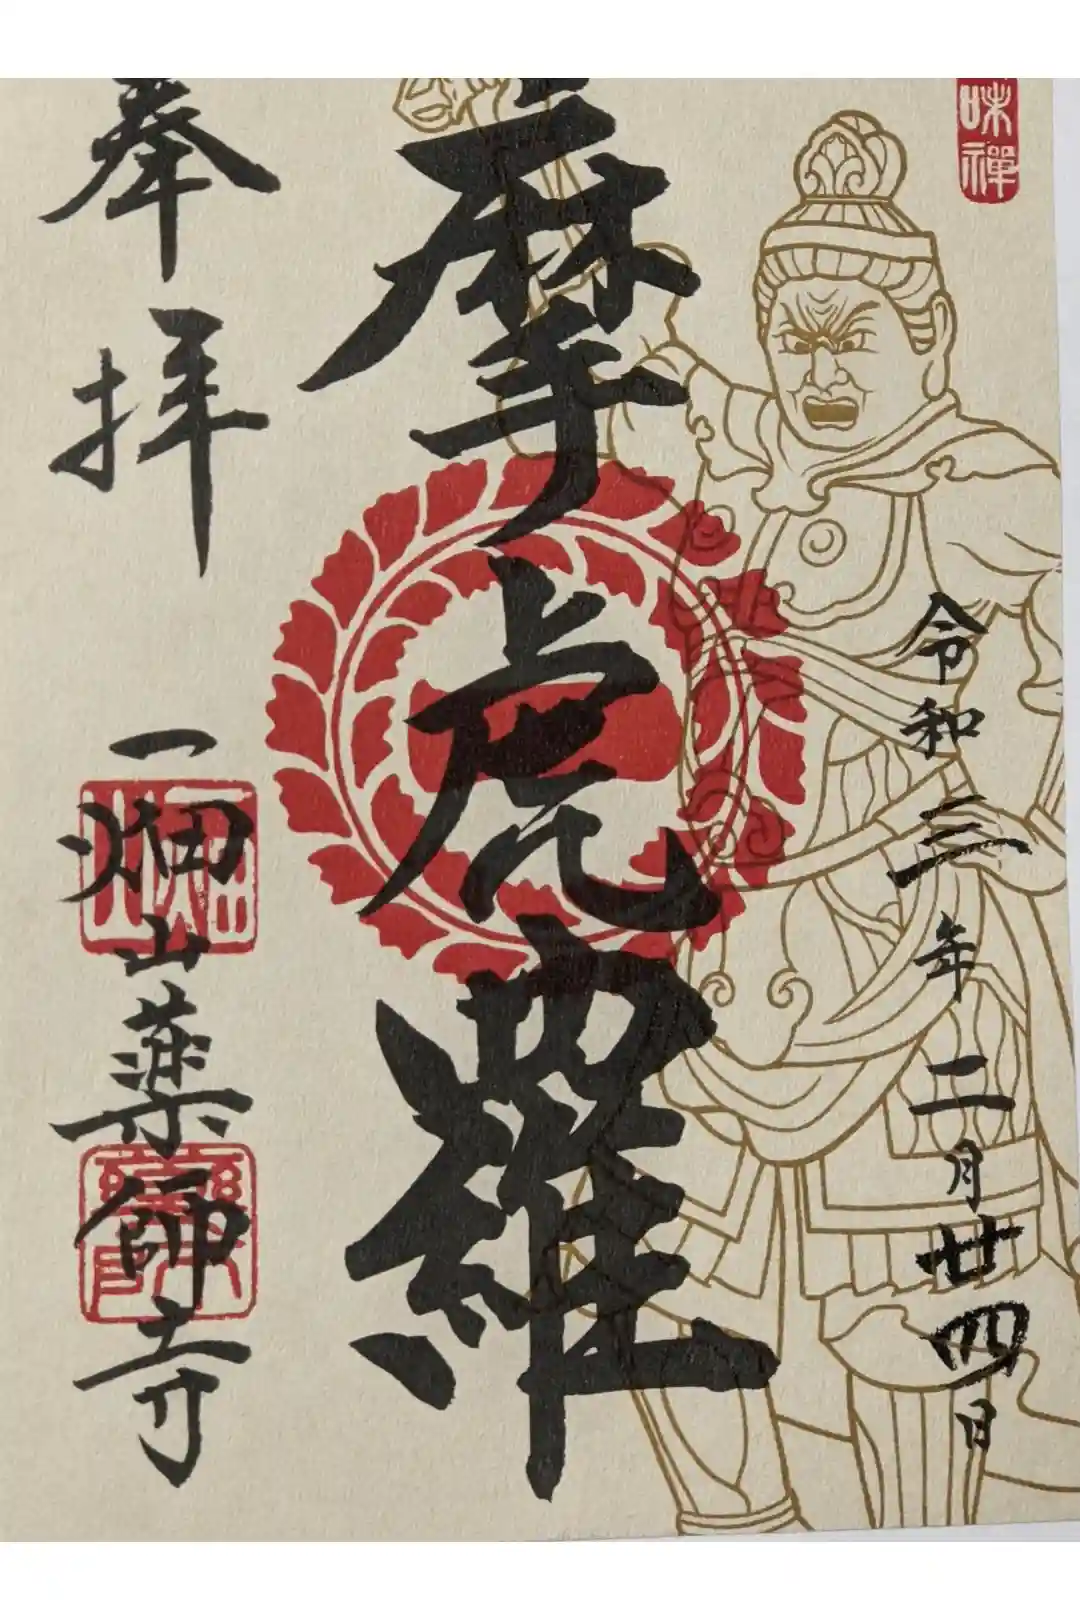 味禅
令和三年二月廿四日
摩虎羅
奉拝
一畑山薬師寺